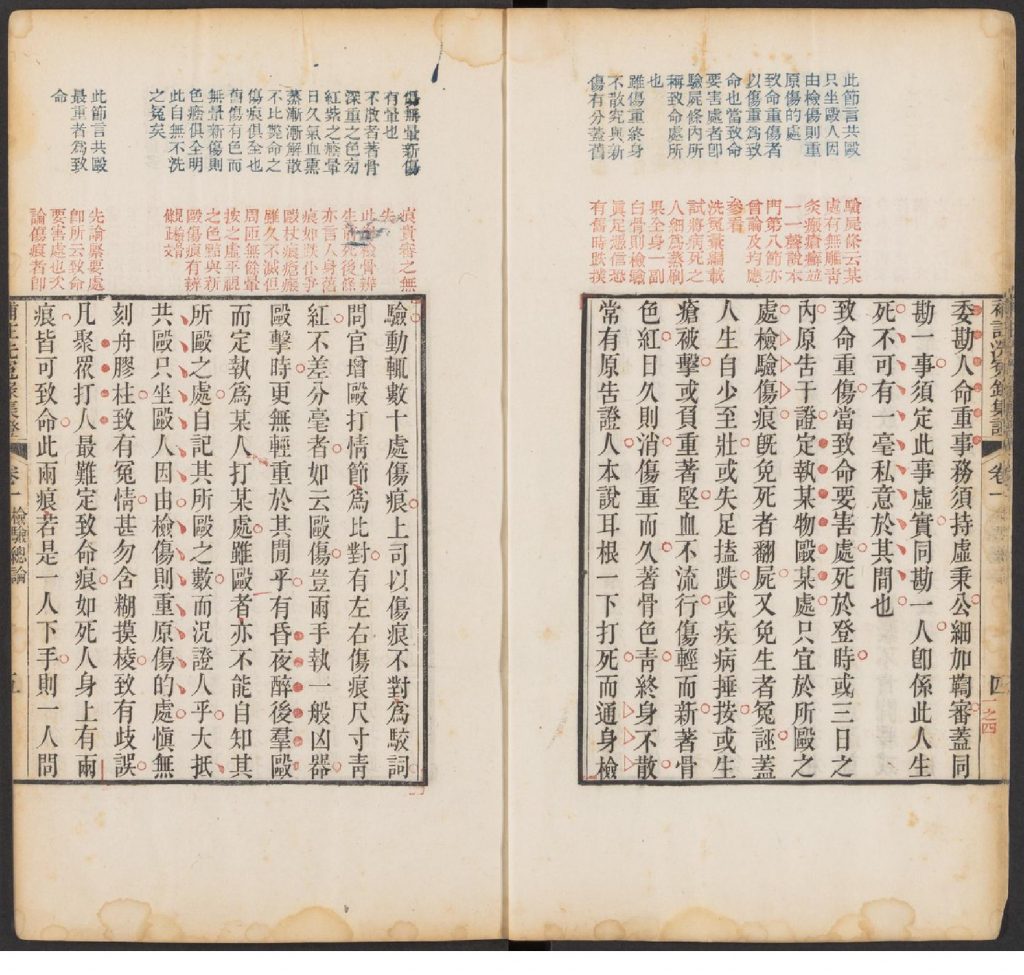 此節言共毆
只坐毆人因
由檢傷則重
原傷的處
致命重傷者
以傷重為致
命也當致命
要害處者卽
驗屍條內所
稱致命處所
也
雖傷重終身
不散究與新
傷有分蓋舊
驗屍條云某
處有無雕靑
灸瘢瘡癬並
一一聲說本
門第八節亦
言論及均應
參看
洗冤彙編載
試蔣病死之
人細爲蒸刷
果全身一副
白骨則檢驗
眞定憑信恐
有傷時跌撲
委勘人命重事務須持虛秉公細加鞫審蓋同
勘一事須定此事虛實同勘一人卽係此人生
死不可有一毫私意於其間也
致命重傷當致命要害處死於登時或三日之
內原告干證定執某物毆某處只宜於所毆之
處檢驗傷痕旣免死者翻屍又免生者冤誣蓋
人生自少至壯或失足搕跌或疾病捶按或生
瘡被擊或負重著堅血不流行傷輕而新著骨
色紅日久則消傷重而久著骨色靑終身不散
常有原告證人本說耳根一下打死而通身檢
補註洗冤錄集證
卷一
四
之四
傷無暈新傷
有暈也
不散者著骨
深重之色匀
紅紫之瘢暈
日久氣血熏
蒸漸漸解散
不比斃命之
傷痕俱全也
舊傷有色而
無暈新傷則
色瘀俱全明
此自無不洗
之冤矣
此節言共毆
最重者爲致
命
痕貴審之無
失
生前死後條
亦言人身舊
痕如跌仆尹
毆杖痕瘡瘢
雖久不滅但
周匝無餘暈
按之虛平視
之色黯與新
毆傷痕有辨
觀此益
先論緊要處
卽所云致命
要害處也次
論傷痕者卽
驗動輒數十處傷痕上司以傷痕不對爲駁詞
問官增毆打情節爲比對有左右傷痕尺寸靑
紅不差分毫者如云毆傷豈兩手執一般凶器
毆擊時更無輕重於其閒乎有昏夜醉後羣毆
而定執爲某人打某處雖毆者亦不能自知其
所毆之處自記其所毆之數而況證人乎大抵
共毆只坐毆人因由檢傷則重原傷的處愼無
刻舟膠柱致有冤情甚勿含糊摸棱致有歧誤
凡聚眾打人最難定致命痕如死人身上有兩
痕皆可致命此兩痕若是一人下手則一人問
卷一
檢驗總論
五